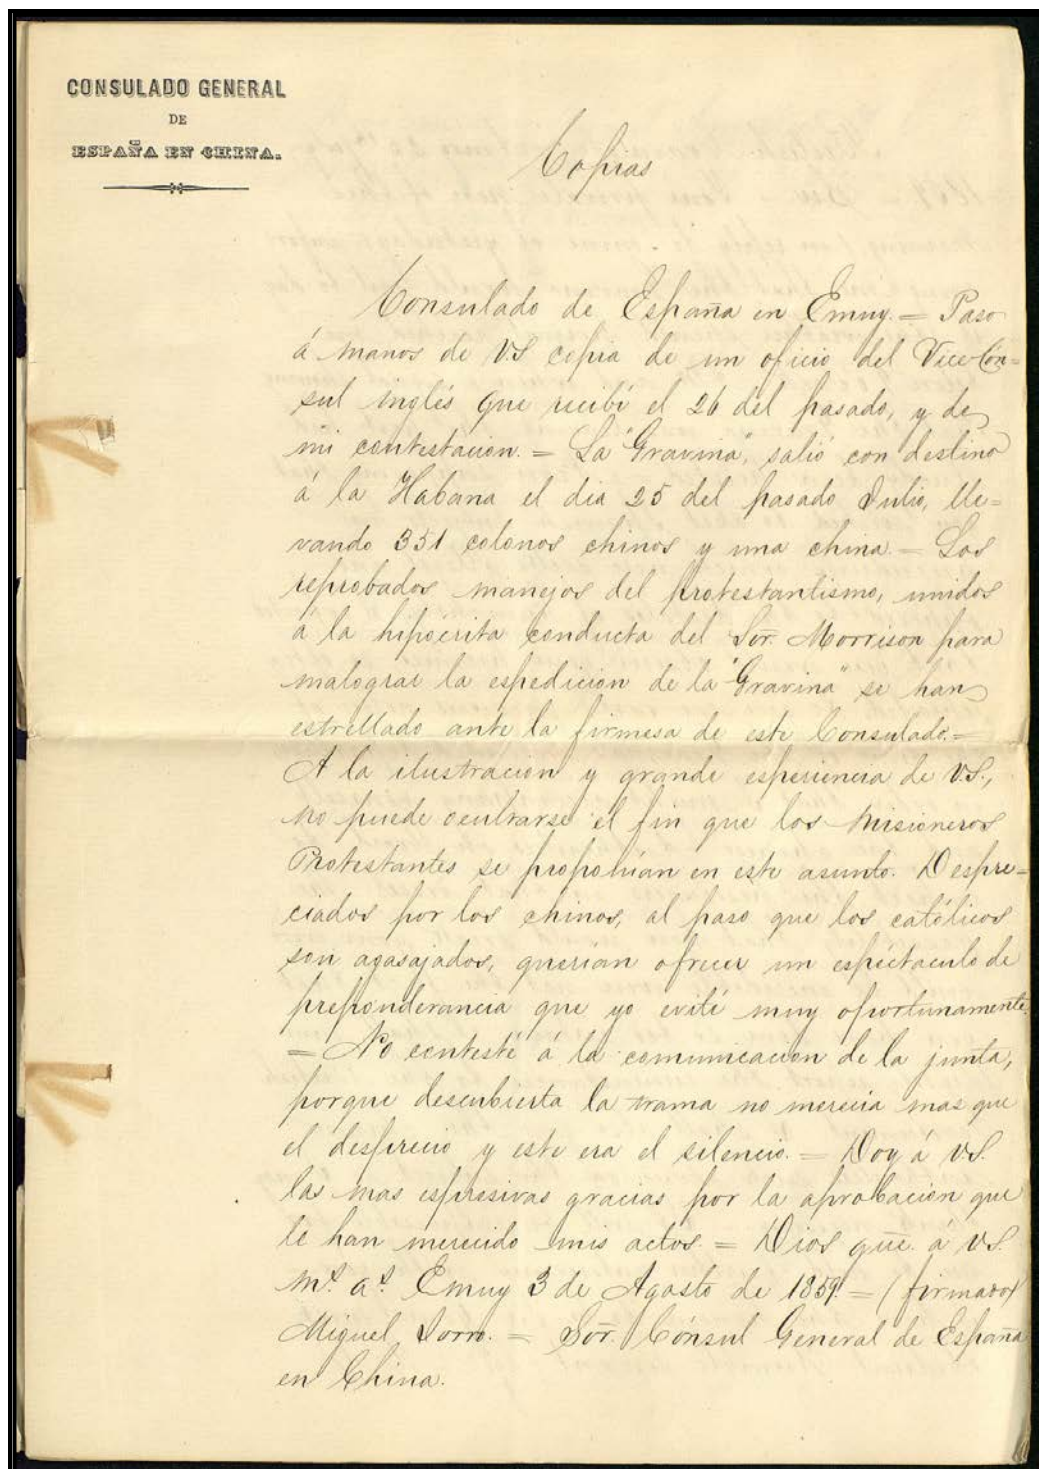 CONSULADO GENERAL
DE
ESPAÑA EN CHINA.
Copias
Consulado de España en Emuy. = Paso
á manos de V.S copia de un oficio del Vice-Cón=
sul inglés que recibí el 26 del pasado, y de
mi contestacion. = La "Gravina", salió con destino
á la Habana el dia 25 del pasado Julio, lle=
vando 351 colonos chinos y una china. = Los
reprobados manejos del protestantismo, unidos
á la hipócrita conducta del Sor. Morrison para
malograr la espedicion de la "Gravina" se han
estrellado ante la firmesa de este Consulado. =
A la ilustracion y grande esperiencia de V.S.,
no puede ocultarse el fin que los Misioneros
Protestantes se proponian en este asunto. Despre=
ciados por los chinos, al paso que los católicos
son agasajados, querian ofrecer un espéctaculo de
preponderancia que yo evité muy oportunamente.
= No contesté á la comunicacion de la junta,
porque descubierta la trama no merecia mas que
el desprecio y este era el silencio. = Doy á V.S.
las mas espresivas gracias por la aprobacion que
le han merecido mis actos. = Dios gūe. á V.S.
ms. as. Emuy 3 de Agosto de 1859. = (firmado)
Miguel = Sōr. Cónsul General de España
en China.